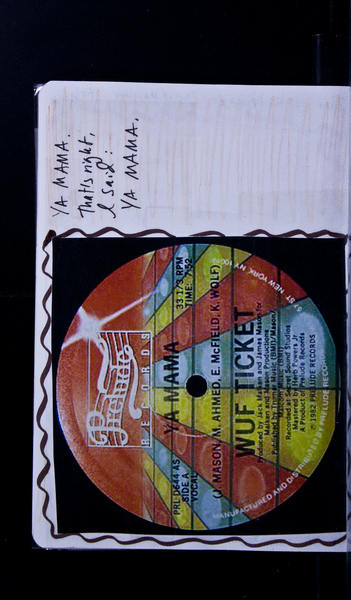 YA MAMA.
That's right,
I said:
YA MAMA.
Prelude
RECORDS
PRL D644 AS
SIDE A
VOCAL
33 1/3 RPM
TIME: 7:52
YA MAMA
(J. MASON, M. AHMED, E. McFIELD, K. WOLF)
WUF TICKET
Produced by Jack Malken and James Mason for
Malken and Mason Productions
Published by Trumar Music (BMI)/Mason/
Music (BMI)
Recorded at Secret Sound Studios
Mastered by Herb Powers Jr.
A Product of Prelude Records
© 1982 PRELUDE RECORDS
MANUFACTURED AND DISTRIBUTED BY PRELUDE RECORDS
57 ST. NEW YORK, NY 10019